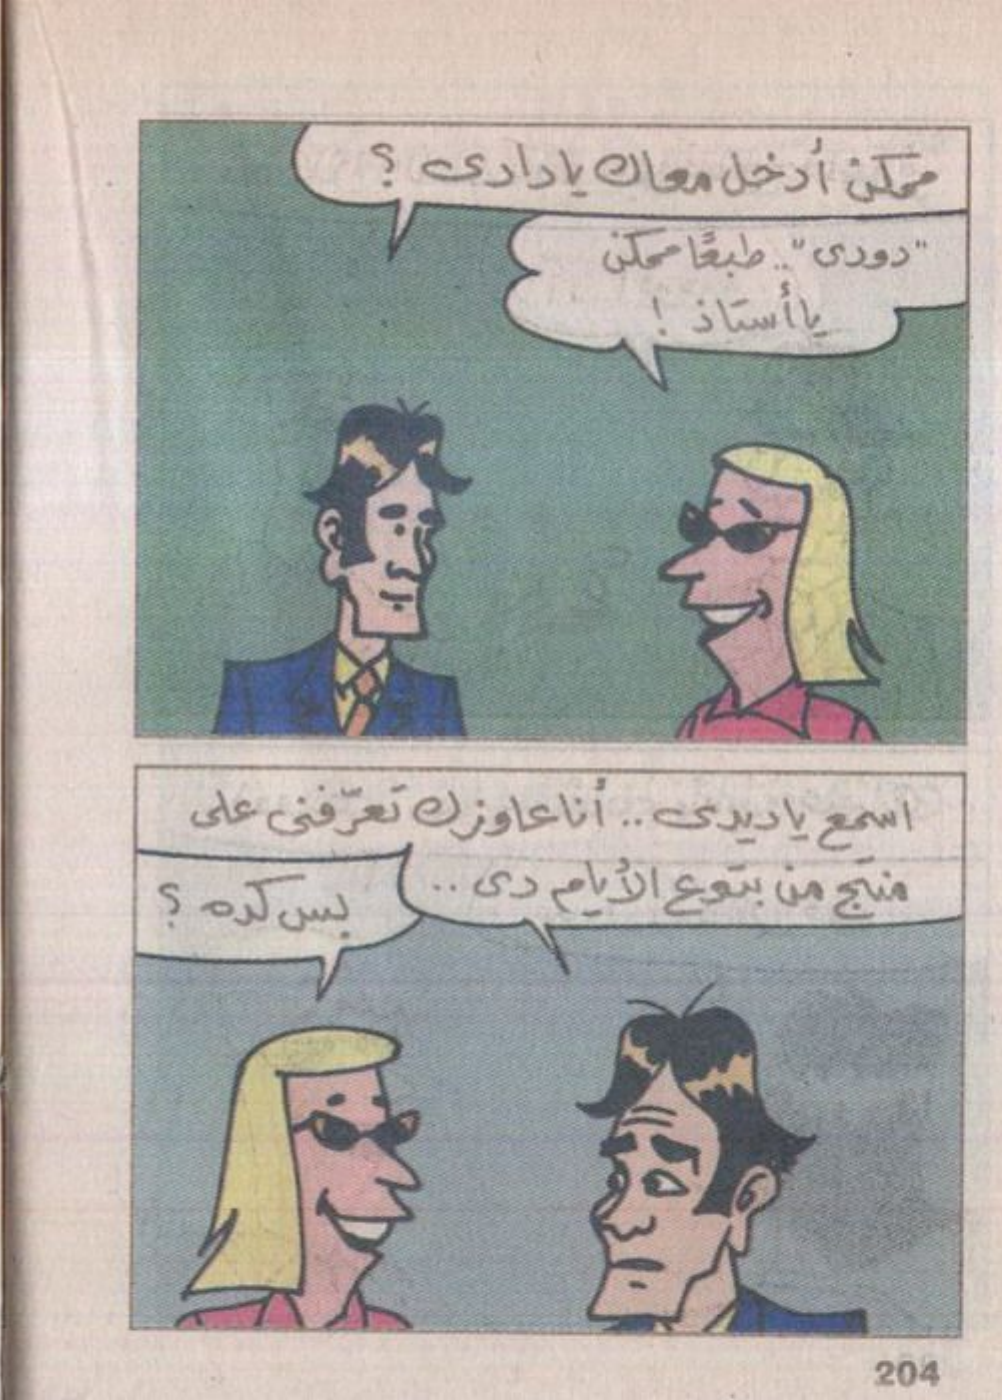 ممكن أدخل معاك يا دادى ؟
"دودى".. طبعًا ممكن
يا أستاذ !
اسمع يا ديدى .. أنا عاوزك تعرّفنى على
منتج من بتوع الأيام دى ..
بس كده ؟
204